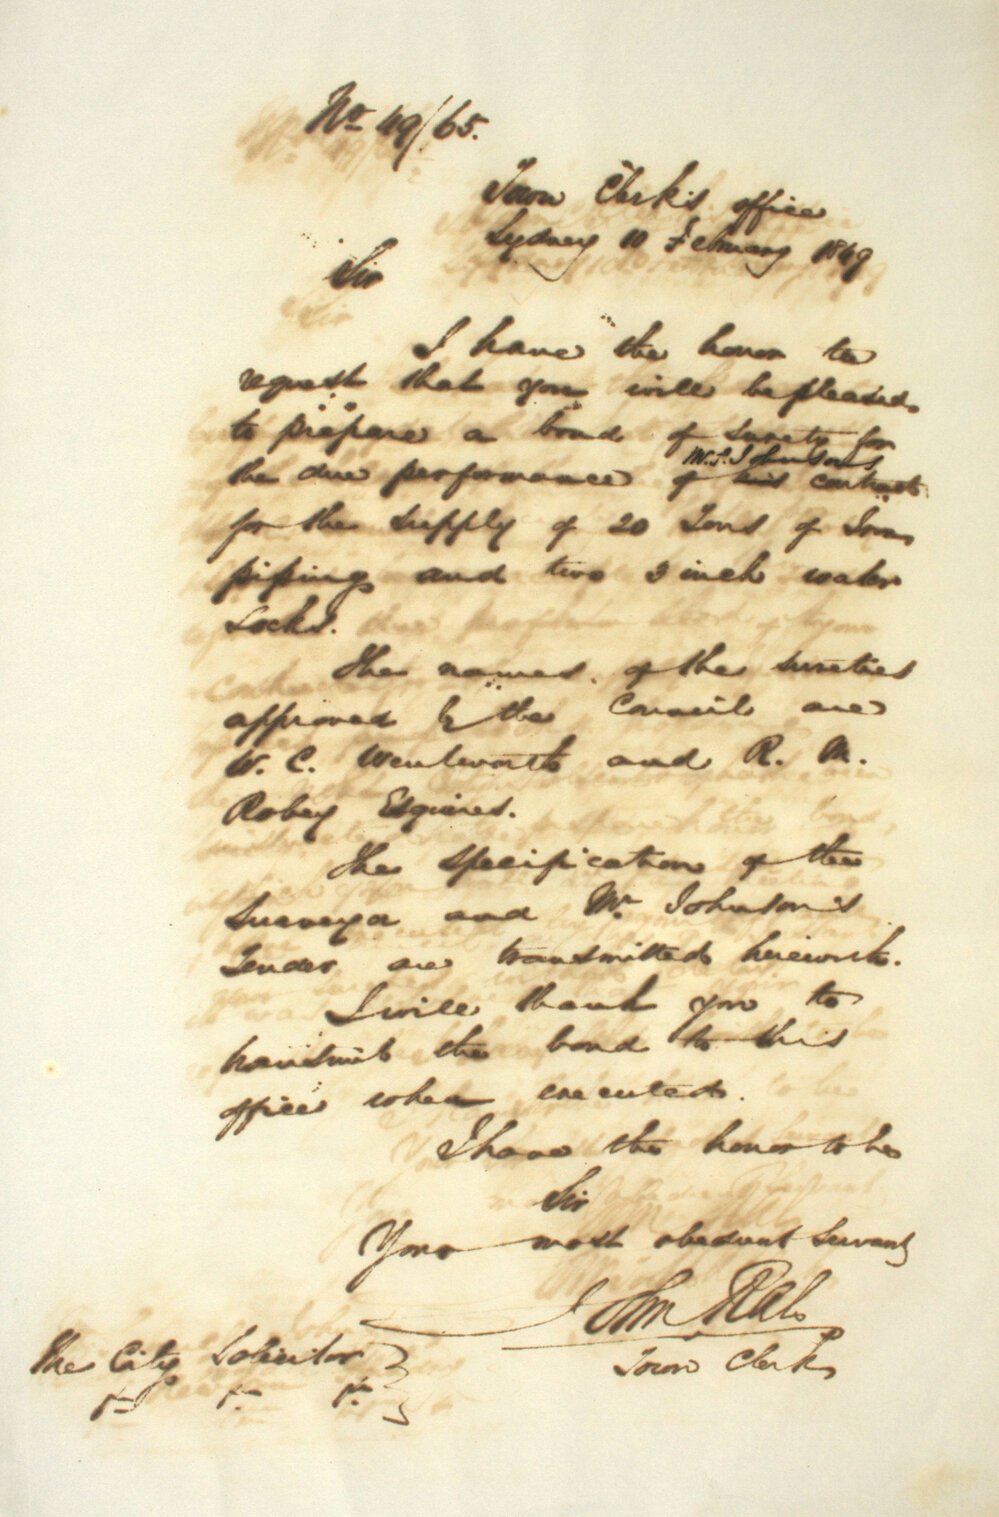 No 49/65.
Town Clerk's office
Sydney 10 February 1849
Sir
I have the honor to
request that you will be pleased
to prepare a bond of surety for
the due performance of his Mr. Johnson's contract
for the supply of 20 Tons of Iron
piping and two 3 inch water
Cocks.
The names of the sureties
approved by the Council are
W. C. Wentworth and R. M.
Robey Esquires.
The specification of the
Surveyor and Mr Johnson's
Tender are transmitted herewith.
I will thank you to
transmit the bond to this
office when executed.
I have the honor to be
Sir
Your most obedient Servant
John
Town Clerk
The City Solicitor